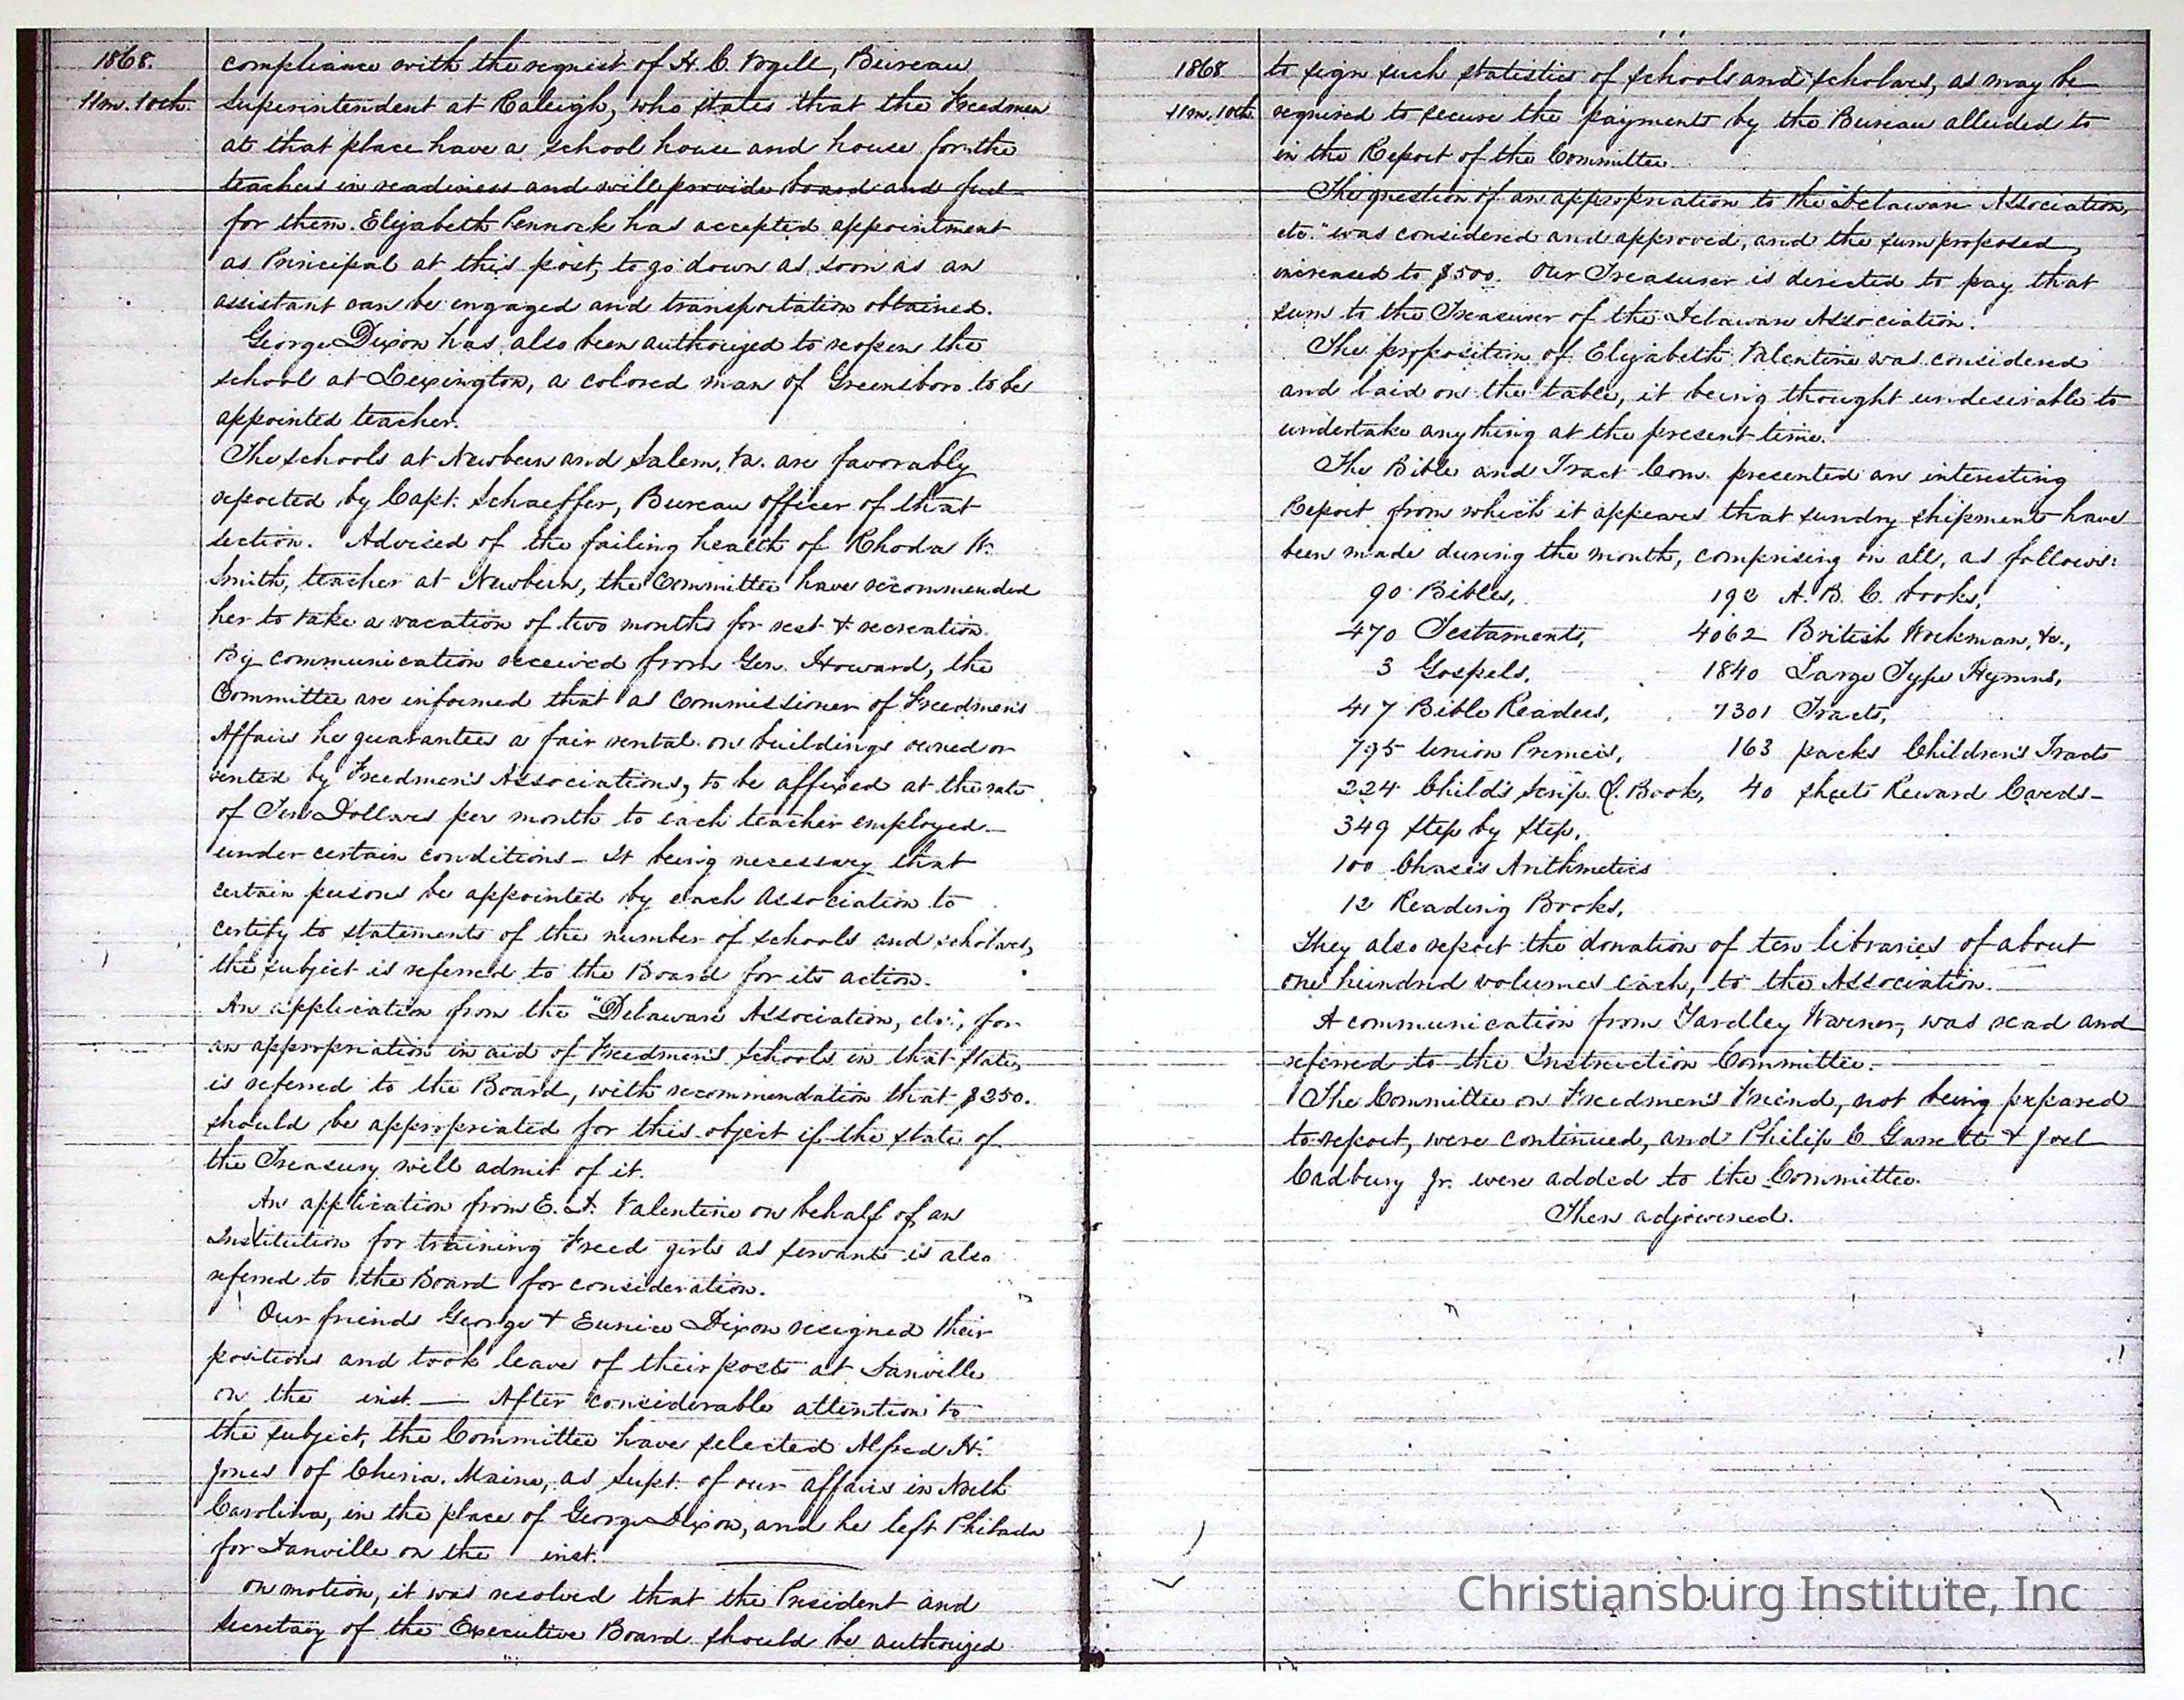 1868.
11m. 10th.
compliance with the request of H. C. Vogell, Bureau
Superintendent at Raleigh, who states that the Freedmen
at that place have a school house and house for the
teachers in readiness and will provide board and fuel
for them. Elizabeth Pennock has accepted appointment
as Principal at this post, to go down as soon as an
assistant can be engaged and transportation obtained.
George Dixon has also been authorized to reopen the
school at Lexington, a colored man of Greensboro to be
appointed teacher.
The schools at Newbern and Salem, Va. are favorably
reported by Capt. Schaeffer, Bureau Officer of that
section. Advised of the failing health of Rhoda W.
Smith, teacher at Newbern, the Committee have recommended
her to take a vacation of two months for rest & recreation.
By communication received from Gen. Howard, the
Committee are informed that as Commissioner of Freedmen's
Affairs he guarantees a fair rental on buildings owned or
rented by Freedmen's Associations, to be affixed at the rate
of Ten Dollars per month to each teacher employed
under certain conditions – It being necessary that
certain persons be appointed by each Association to
certify to statements of the number of schools and scholars,
the subject is referred to the Board for its action.
An application from the "Delaware Association, etc.", for
an appropriation in aid of Freedmen's Schools in that State,
is referred to the Board, with recommendation that $250.
should be appropriated for this object if the state of
the Treasury will admit of it.
An application from E. Valentine on behalf of an
Institution for training Freed girls as servants is also
referred to the Board for consideration.
Our friends George & Eunice Dixon resigned their
positions and took leave of their posts at Danville
on the inst. — After considerable attention to
the subject, the Committee have selected Alfred H.
Jones of China, Maine, as Supt. of our affairs in North
Carolina, in the place of George Dixon, and he left Philada
for Danville on the inst.
On motion, it was resolved that the President and
Secretary of the Executive Board should be authorized
1868
11m. 10th.
to sign such statistics of schools and scholars, as may be
required to secure the payments by the Bureau alluded to
in the Report of the Committee.
The question of an appropriation to the "Delaware Association,
etc." was considered and approved, and the sum proposed,
increased to $500. Our Treasurer is directed to pay that
sum to the Treasurer of the Delaware Association.
The proposition of Elizabeth Valentine was considered
and laid on the table, it being thought undesirable to
undertake anything at the present time.
The Bible and Tract Com. presented an interesting
Report from which it appears that sundry shipments have
been made during the month, comprising in all, as follows:
90 Bibles, 192 A. B. C. books,
470 Testaments, 4062 British Workman, &c.,
3 Gospels, 1840 Large Type Hymns,
417 Bible Readers, 7301 Tracts,
795 Union Primers, 163 packs Children's Tracts
224 Child's Scrip. Q. Book, 40 sheets Reward Cards –
349 Step by Step,
100 Chase's Arithmetics
12 Reading Books,
They also report the donation of ten libraries of about
one hundred volumes each, to the Association.
A communication from Yardley Warner, was read and
referred to the Instruction Committee.
The Committee on Freedmen's Friend, not being prepared
to report, were continued, and Philip C Garrett & Joel
Cadbury Jr. were added to the Committee.
Then adjourned.
Christiansburg Institute, Inc